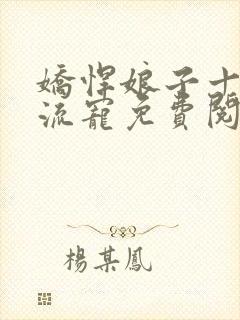 嬌悍娘子十
流寵免費閱
楊某鳳